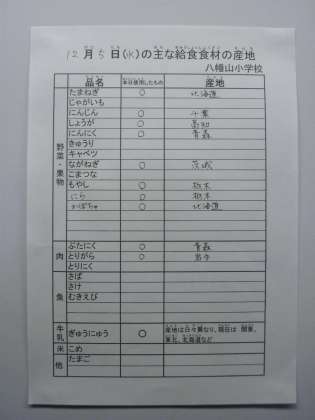 12月5日(水)の主な給食食材の産地
八幡山小学校
品名 本日使用したもの 産地
野菜・果物
たまねぎ ○ 北海道
じゃがいも
にんじん ○ 千葉
しょうが ○ 高知
にんにく ○ 青森
きゅうり
キャベツ
ながねぎ ○ 茨城
こまつな
もやし ○ 栃木
にら ○ 栃木
かぼちゃ ○ 北海道
肉
ぶたにく ○ 青森
とりがら ○ 岩手
とりにく
魚
さば
さけ
むきえび
牛乳 ぎゅうにゅう ○ 産地は日々異なり、現在は 関東、
東北、北海道など
米 こめ
他 たまご